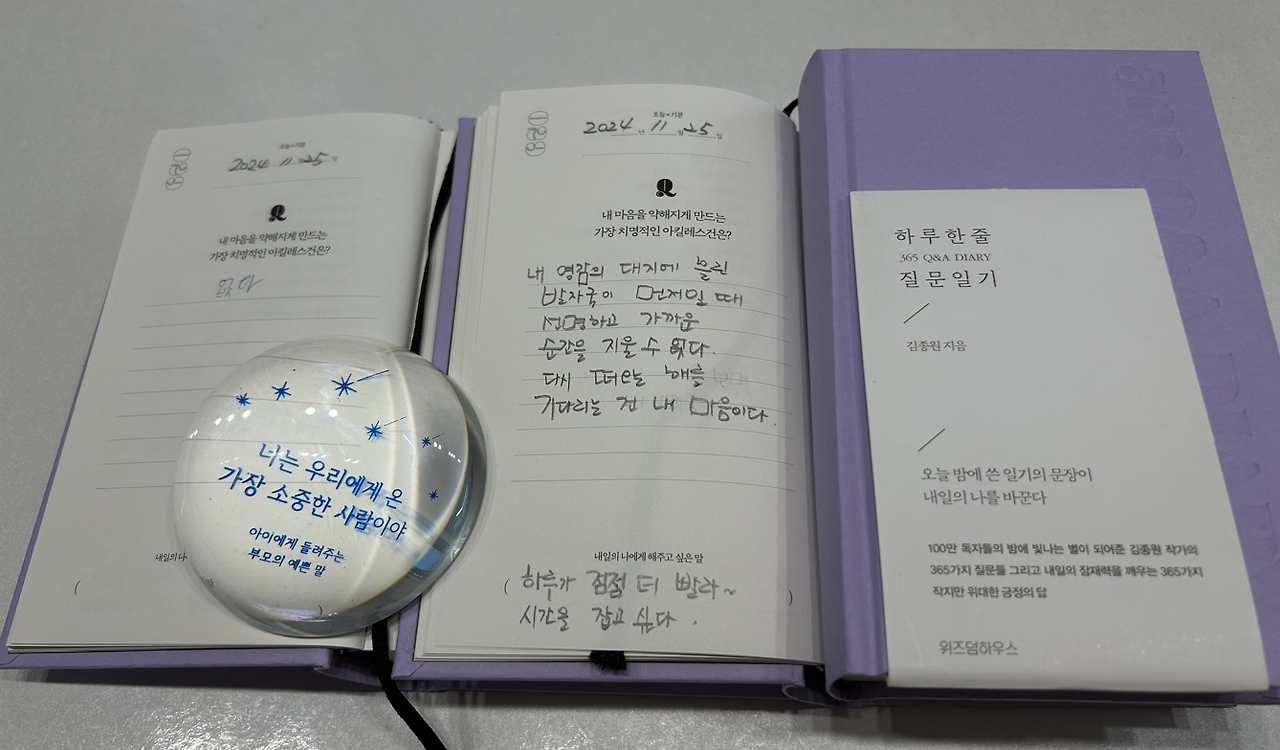 오늘의 기분
2024 11 25 일
Q
내 마음을 약해지게 만드는
가장 치명적인 아킬레스건은?
없다
너는 우리에게 온
가장 소중한 사람이야
아이에게 들려주는
부모의 예쁜 말
내일의 나
(
)
오늘의 기분
2024 년 11 월 25 일
Q
내 마음을 약해지게 만드는
가장 치명적인 아킬레스건은?
내 영감의 대지에 눌린
발자국이 먼저일 때
선명하고 가까운
순간을 지울 수 없다.
다시 떠오는 해를
기다리는 건 내 마음이다.
내일의 나에게 해주고 싶은 말
( 하루가 점점 더 빨라~ )
시간을 잡고 싶다.
하루 한 줄
365 Q&A DIARY
질문 일기
김종원 지음
오늘 밤에 쓴 일기의 문장이
내일의 나를 바꾼다
100만 독자들의 밤에 빛나는 별이 되어준 김종원 작가의
365가지 질문들 그리고 내일의 잠재력을 깨우는 365가지
작지만 위대한 긍정의 답
위즈덤하우스